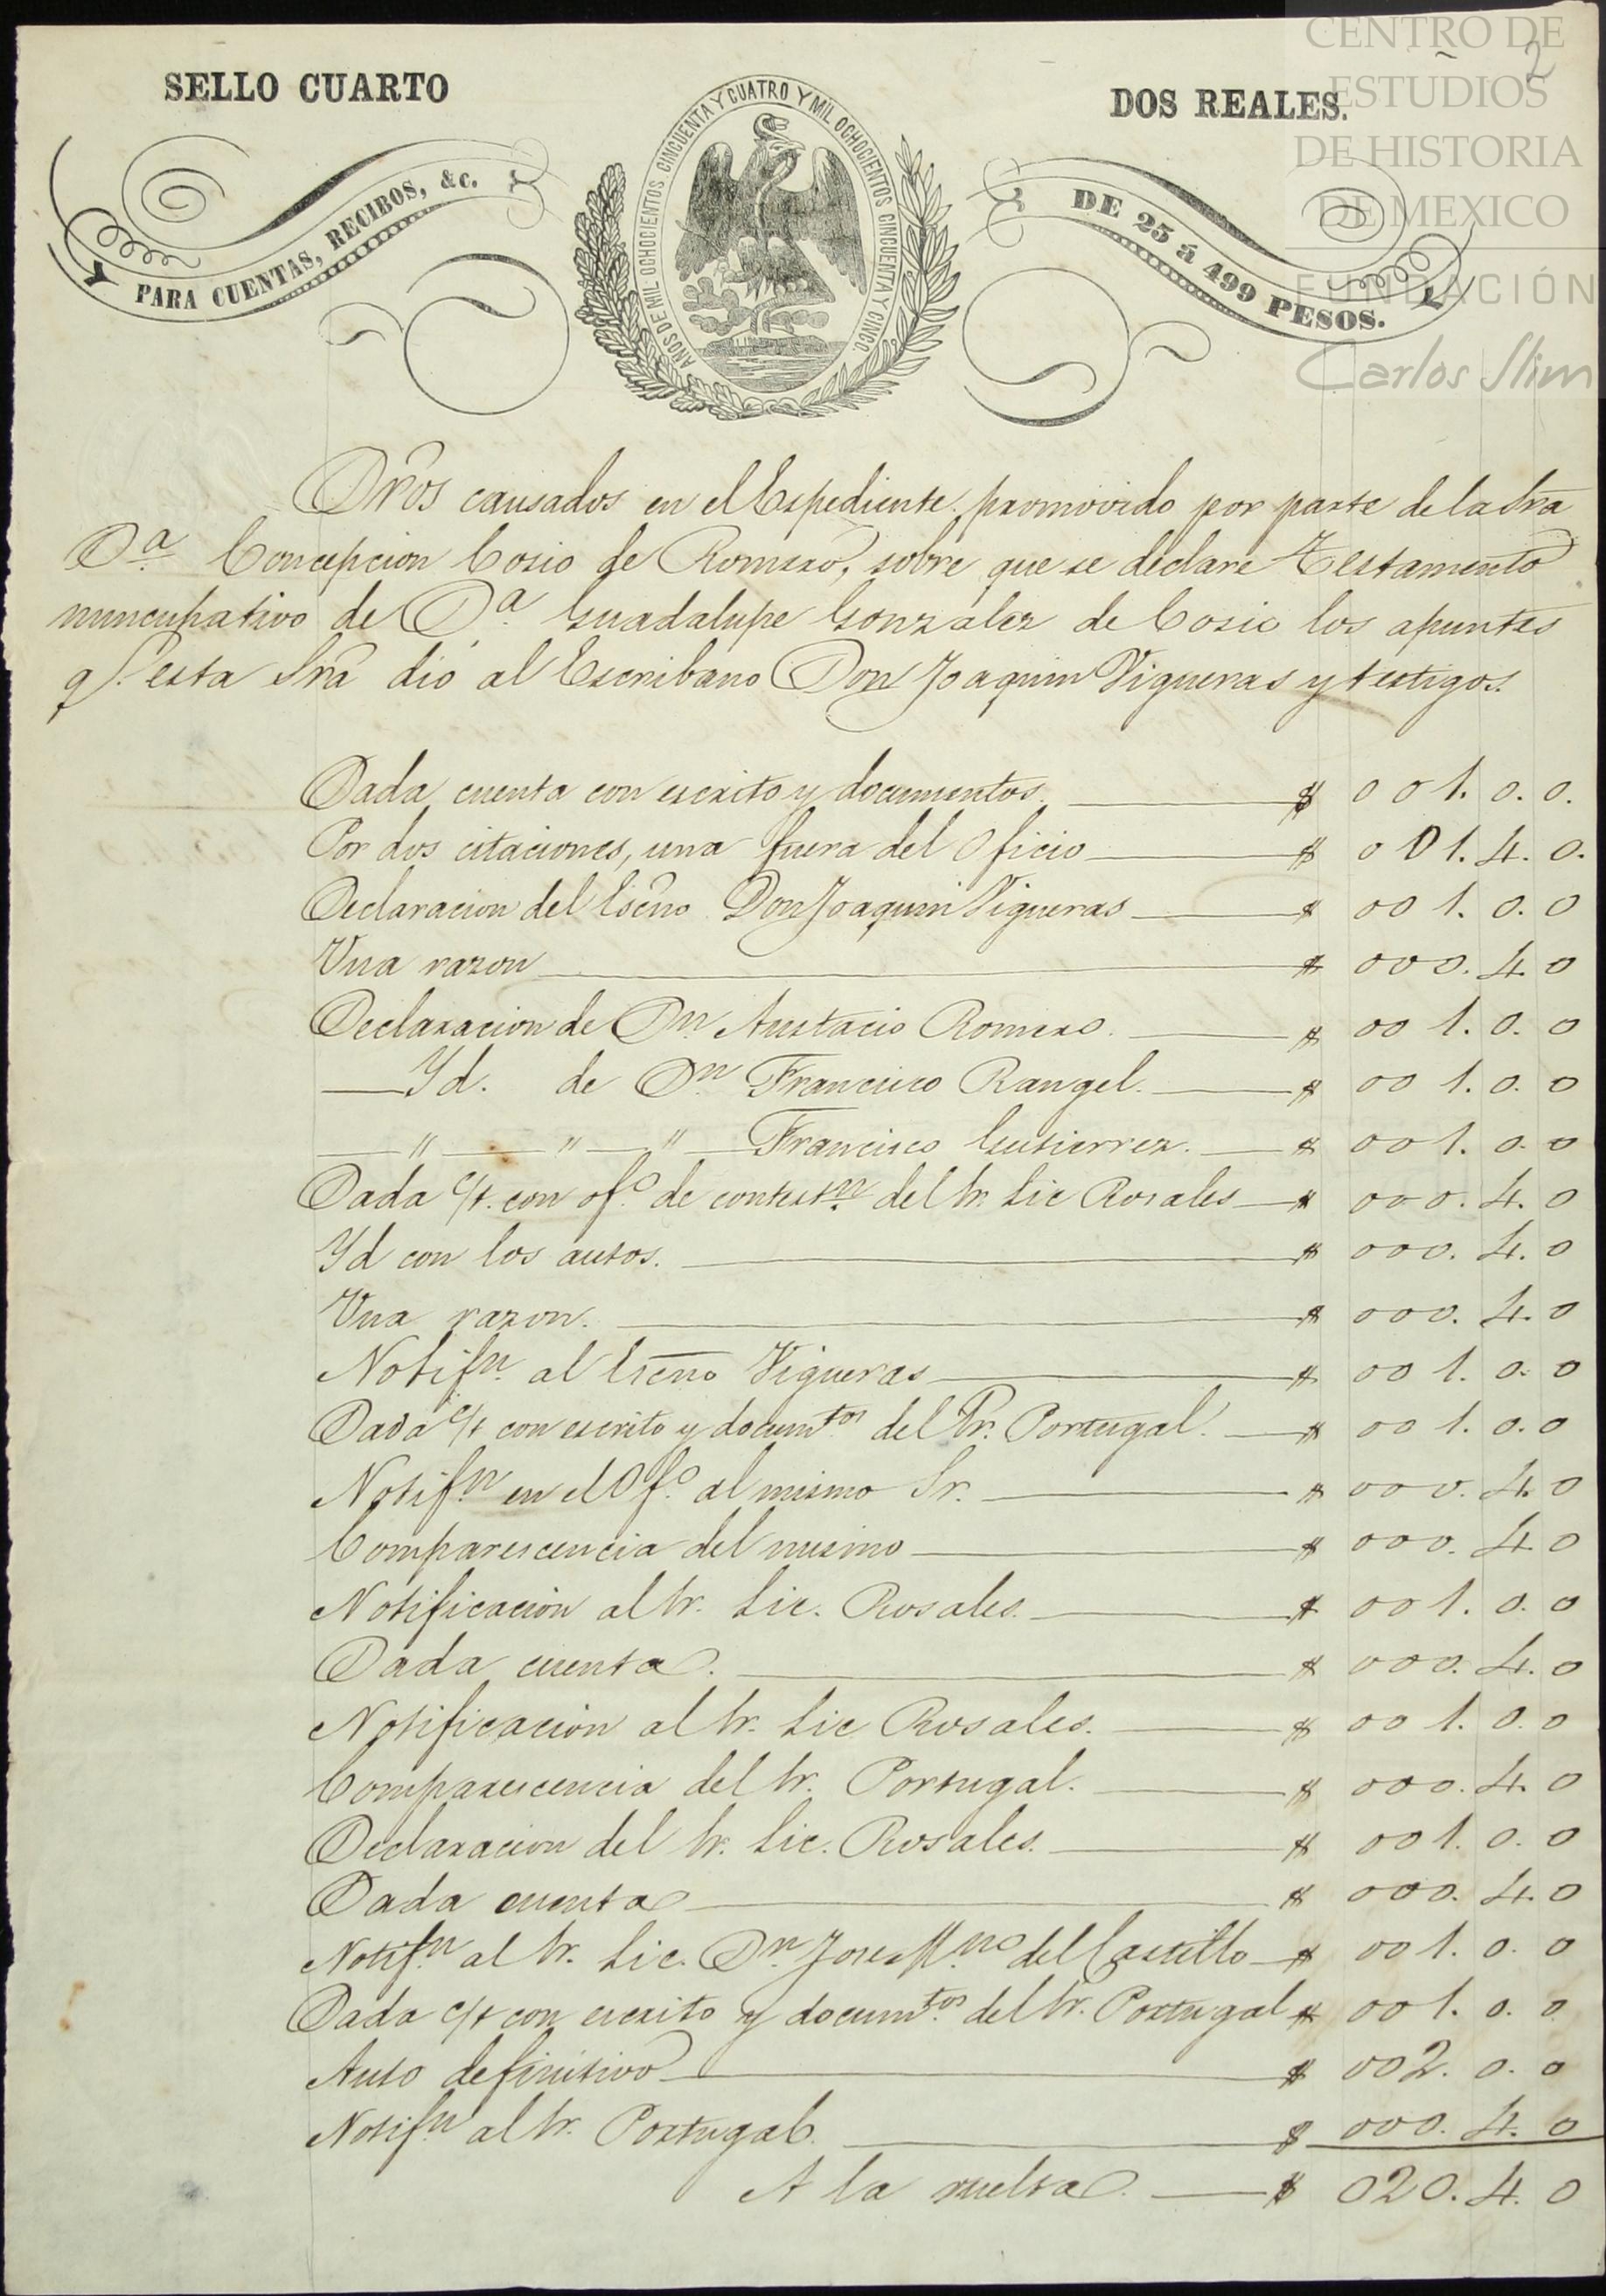 CENTRO DE
ESTUDIOS
DE HISTORIA
DE MEXICO
FUNDACIÓN
Carlos Slim
2
SELLO CUARTO
DOS REALES.
PARA CUENTAS, RECIBOS, &c.
AÑOS DE MIL OCHOCIENTOS CINCUENTA Y CUATRO Y MIL OCHOCIENTOS CINCUENTA Y CINCO.
DE 25 á 499 PESOS.
Dros causados en el Espediente promovido por parte de la Sra
Da. Concepcion Cosio de Romero, sobre que se declare Testamento
nuncupativo de Da. Guadalupe Gonzalez de Cosio los apuntes
q. esta Sra dió al Escribano Don Joaquin Vigueras y testigos.
Dada cuenta con escrito y documentos. $ 001. 0. 0.
Por dos citaciones, una fuera del Oficio $ 001. 4. 0.
Declaracion del Escno Don Joaquin Vigueras $ 001. 0. 0
Una razon $ 000. 4. 0
Declaracion de Dn. Austacio Romero. $ 001. 0. 0
Yd. de Dn. Francisco Rangel. $ 001. 0. 0
" " " Francisco Gutierrez. $ 001. 0. 0
Dada c/t. con ofo. de contestn. del Sr. Lic Rosales $ 000. 4. 0
Yd con los autos. $ 000. 4. 0
Una razon. $ 000. 4. 0
Notifn. al Escno Vigueras $ 001. 0. 0
Dada c/t con escrito y documtos. del Sr. Portugal. $ 001. 0. 0
Notifn. en el Ofo. al mismo Sr. $ 000. 4. 0
Comparescencia del mismo $ 000. 4. 0
Notificacion al Sr. Lic. Rosales. $ 001. 0. 0
Dada cuenta. $ 000. 4. 0
Notificacion al Sr. Lic Rosales. $ 001. 0. 0
Comparescencia del Sr. Portugal. $ 000. 4. 0
Declaracion del Sr. Lic. Rosales. $ 001. 0. 0
Dada cuenta $ 000. 4. 0
Notifn. al Sr. Lic. Dn. Jose Mno. del Castillo $ 001. 0. 0
Dada c/t con escrito y documtos. del Sr. Portugal $ 001. 0. 0
Auto definitivo $ 002. 0. 0
Notifn al Sr. Portugal. $ 000. 4. 0
A la vuelta. $ 020. 4. 0